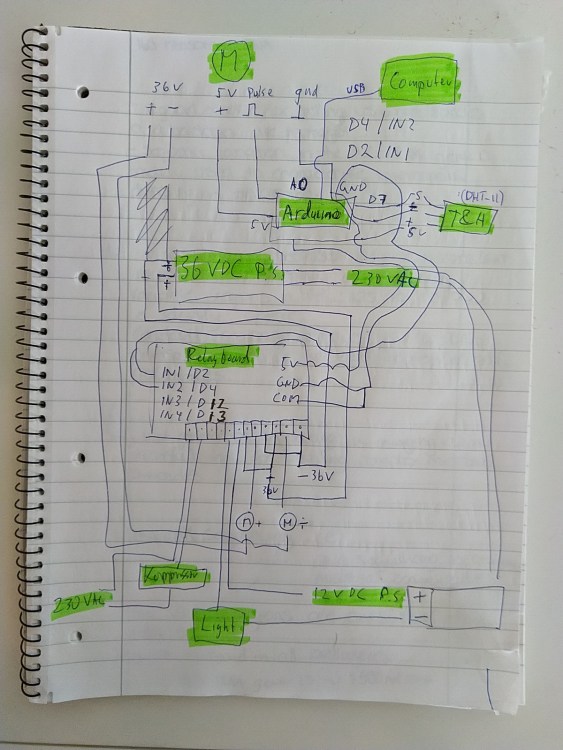 M
36V
5V
Pulse
gnd
+ -
+
USB
Computer
D4/IN2
D2/IN1
A0
GND
D7
S
(DHT-11)
Arduino
T&H
5V
+
5V
36 VDC P.S
230VAC
Relayboard
IN1/D2
IN2/D4
IN3/D12
IN4/D13
5V
GND
COM
-36V
+
36V
M +
M ÷
230VAC
12VDC P.S
+
-
Light